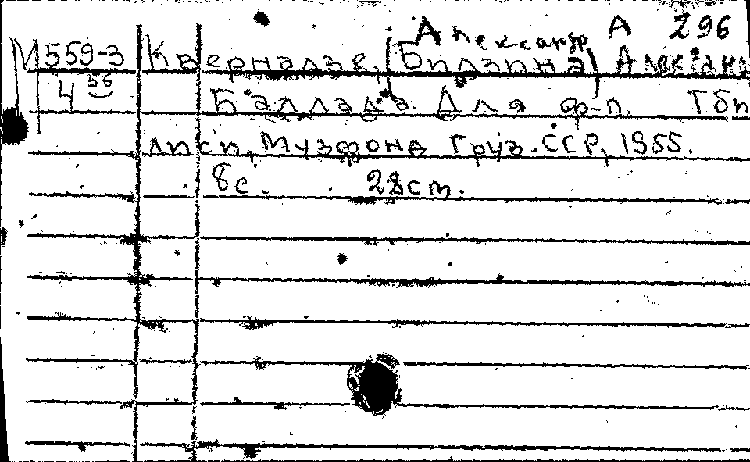 Александр А 296
М559-3 Квернадзе, (Бидзина) Алексан
4 56 Баллада. Для ф-п. Тби
Литогр. Музфонда Груз.ССР, 1955.
8с. 28см.